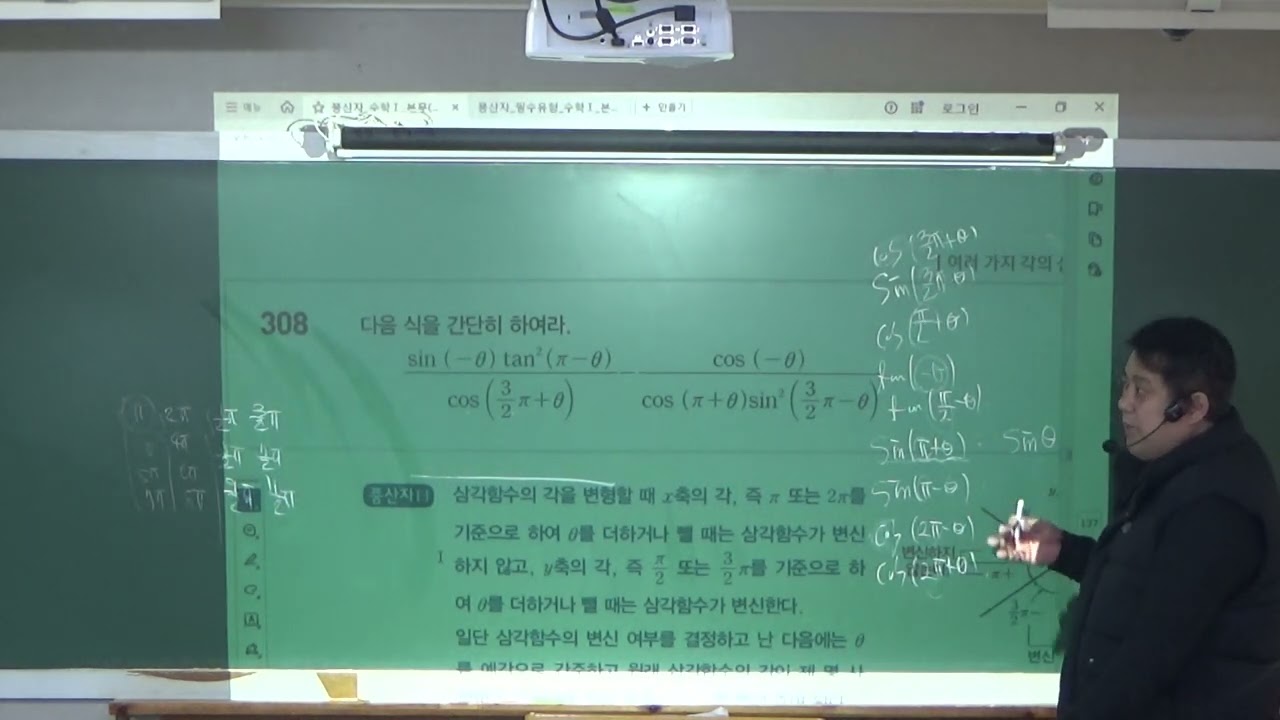 메뉴 풍산자_수학Ⅰ_본문(... × 풍산자_필수유형_수학Ⅰ_본... + 만들기 로그인
여러 가지 각의
308 다음 식을 간단히 하여라.
sin (−θ) tan²(π−θ) / cos (3/2 π+θ) − cos (−θ) / cos (π+θ)sin² (3/2 π−θ)
풍산자日 삼각함수의 각을 변형할 때 x축의 각, 즉 π 또는 2π를
기준으로 하여 θ를 더하거나 뺄 때는 삼각함수가 변신
하지 않고, y축의 각, 즉 π/2 또는 3/2 π를 기준으로 하
여 θ를 더하거나 뺄 때는 삼각함수가 변신한다.
일단 삼각함수의 변신 여부를 결정하고 난 다음에는 θ
를 예각으로 간주하고 원래 삼각함수의 각이 제 몇 사
cos (3/2 π+θ)
sin (3/2 π-θ)
cos (π/2 +θ)
tan (-θ)
tan (π/2 -θ)
sin (π+θ) · sin θ
sin (π-θ)
cos (2π-θ)
cos (2π+θ)
변신하지
π+
3/2 π−
변신
y
137
π 2π